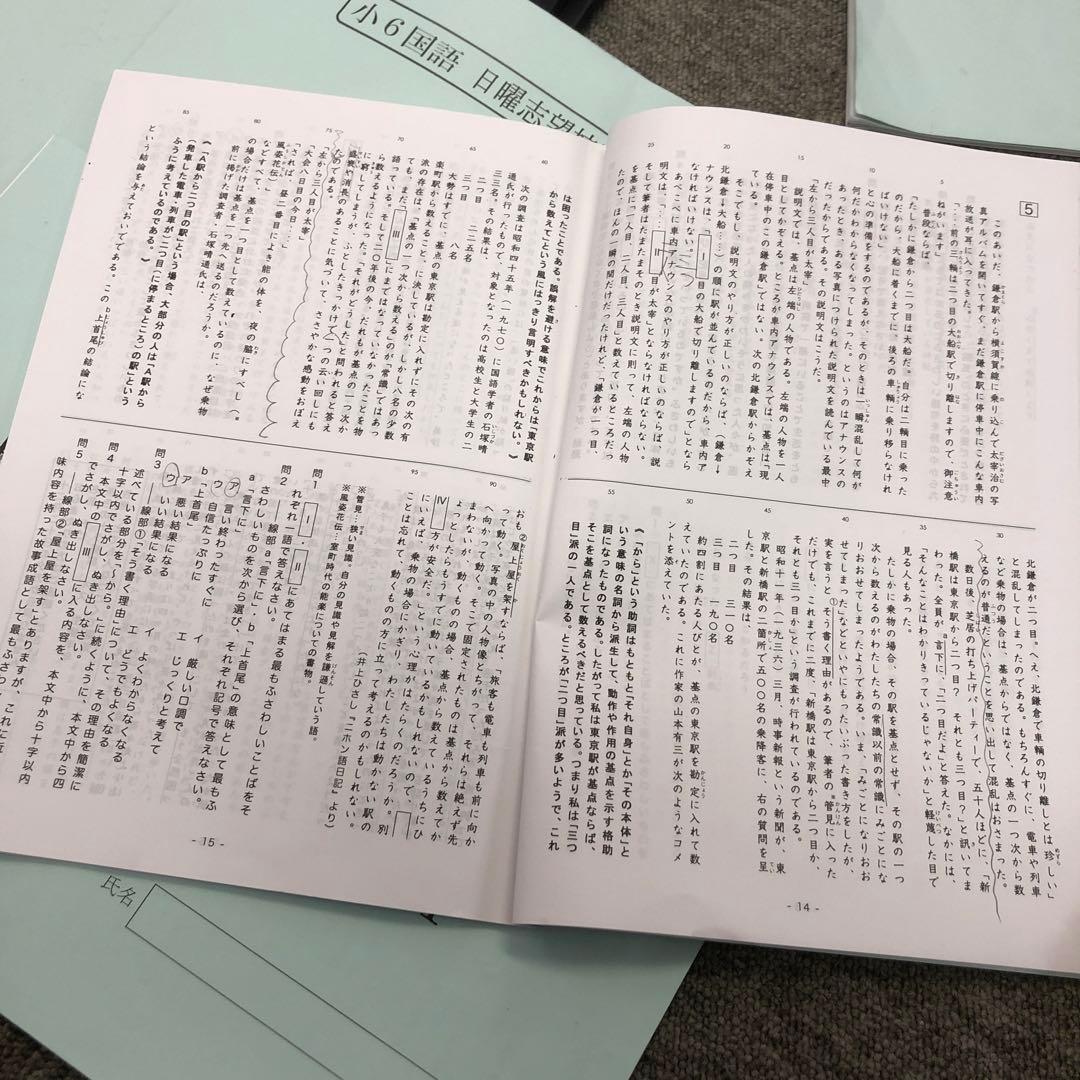 小6国語 日曜志望校
5
このあいだ、鎌倉駅から横須賀線に乗り込んで太宰治の写
真アルバムを開いてすぐ、まだ鎌倉駅に停車中にこんな車内
放送が耳に入ってきた。
「……前の三輛は二つ目の大船駅で切り離しますので、御注意
ねがいます」
普段ならば、
「たしかに鎌倉から二つ目は大船だ。自分は二輛目に乗った
のだから、大船に着くまでに、後ろの車輛に乗り移らなけれ
ばいけない」
と心の準備をするのであるが、そのときは一瞬混乱して何が
何だかわからなくなってしまった。というのはアナウンスの
あったとき、ある写真につけられた説明文を読んでいる最中
だったからである。その説明文はこうだ。
「左から三人目が太宰」
説明文では、基点は左端の人物である。左端の人物を一人
目としてかぞえる。ところが車内アナウンスでは、基点は「現
在停車中のこの鎌倉駅」ではない。次の北鎌倉駅からかぞえ
そこでもし、説明文のやり方が正しいのならば、(鎌倉→
北鎌倉→大船……)の順に駅が並んでいるのだから、車内ア
ナウンスは、「Ⅰ目の大船駅で切り離しますので」となら
なければいけない。
あべこべに車内アナウンスのやり方が正しいのならば、説
明文は、「Ⅱ目が太宰」とならなければならない。
そして筆者はたまたまそのとき説明文に則って、左端の人物
を基点に「一人目、二人目、三人目」と数えているところだっ
たので、ほんの一瞬の間だけだったけれど、「鎌倉が一つ目、
北鎌倉が二つ目。へえ、北鎌倉で車輛の切り離しとは珍しい」
と混乱してしまったのである。もちろんすぐに、電車や列車
など乗物の場合は、基点からではなく、基点の一つ次から数
えるのが普通だということを思い出して混乱はおさまった。
数日後、芝居の打ち上げパーティーで、五十人ほどに、「新
橋駅は東京駅から二つ目？ それとも三つ目？」と訊いてま
わった。全員が a言下に、「二つ目だよ」と答えた。なかには、
「そんなことはわかりきっているじゃないか」と軽蔑した目で
見る人もあった。
たしかに乗物の場合、その駅を基点とせず、その駅の一つ
次から数えるのがわたしたちの常識以前の常識にみごとにな
りおおせてしまったようである。いま、「みごとになりおお
せてしまった」などといやにもったいぶった書き方をしたが、
実を言うと①そう書く理由があるので、筆者の管見に入った
だけでも、これまでに二度、「新橋駅は東京駅から二つ目か、
それとも三つ目か」という調査が行われているのである。
昭和十一年（一九三六）三月、時事新報という新聞が、東
京駅と新橋駅の二箇所で五〇〇名の乗降客に、右の質問を呈
した。その結果は、
二つ目　三一〇名
三つ目　一九〇名
約四割にあたる人びとが、基点の東京駅を勘定に入れて数
えていたのである。これに作家の山本有三が次のようなコメ
ントを添えていた。
《「から」という助詞はもともと「それ自身」とか「その本体」と
いう意味の名詞から派生して、動作や作用の基点を示す格助
詞になったものである。したがって私は東京駅が基点ならば、
そこを基点として数えるべきだと思っている。つまり私は「三つ
目」派の一人である。ところが「二つ目」派が多いようで、これ
- 14 -
は困ったことである。誤解を避ける意味でこれからは「東京駅
から数えて」という風にはっきり言明すべきかもしれない。》
次の調査は昭和四十五年（一九七〇）に国語学者の石塚晴
通氏が行ったもので、対象となったのは高校生と大学生の二
三三名。その結果は、
二つ目　二二五名
大勢はすでに、基点の東京駅は勘定に入れずにその次の有
楽町駅から数えること、に決しているが、しかし八名の少数
派の存在は、「基点の一つ次から数える」のが「常識」ではあっ
ても、まだ「Ⅲ」にまではなっていなかったことを物
語っている。そして二〇年後の今、だれもが基点の一つ次か
ら数えるようになった。それがどうしたと問われると答え
に窮してしまうが、ふとしたきっかけで一つの云い回しにも
盛衰や消長のあることに気づいて、ささやかな感動をおぼえ
たのである。
「左から三人目が太宰」
「大会八日目の今日……」
「されば、昼二番目によき能の体を、夜の脇にすべし」《
風姿花伝》
などすべて、基点を一つ目として数えているのに、なぜ乗物
の場合だけは基点を一つ先へ送るのだろうか。
前に掲げた調査者・石塚晴通氏は、
《「A駅から二つ目の駅」という場合、大部分の人は「A駅から
（発車した電車・列車が）二つ目（に停まるところ）の駅」という
ふうに考えているのである。》
という結論を与えておいでである。このb上首尾の結論にな
おも②屋上屋を架すならば、「旅客も電車も列車も前に向か
って動く。写真の中の人物像とちがって、それらは絶えず先
へ向かって動く。そこで固定されたものは基点から数えてか
まわないが、動くものの場合、基点から数えているうちにひ
ょっとしたらもうすでに動いているかもしれないので、
Ⅳ方が安全だ」という心理がはたらくのだろうか。別
にいえば、乗物の場合にかぎり、わたしたちは動かない駅の
ことは忘れて、動くものの方に立って考えるのかもしれない。
（井上ひさし『ニホン語日記』より）
※管見…狭い見識。自分の見識や見解を謙遜していう語。
※風姿花伝…室町時代の能楽についての書物。
問1　Ⅰ・Ⅱにあてはまる最もふさわしいことばをそ
れぞれ一語で答えなさい。
問2　――線部a「言下に」・b「上首尾」の意味として最もふ
さわしいものを次から選び、それぞれ記号で答えなさい。
a「言下に」
ア　言い終わったすぐに　イ　厳しい口調で
ウ　自信たっぷりに　エ　じっくりと考えて
b「上首尾」
ア　悪い結果になる　イ　よくわからなくなる
ウ　いい結果になる　エ　どうでもよくなる
問3　――線部①「そう書く理由」について、その理由を簡潔に
述べている部分を「～から。」に続くように、本文中から四
十字以内でさがし、ぬき出しなさい。
問4　本文中のⅢに入る内容を、本文中から十字以内
でさがし、ぬき出しなさい。
問5　――線部②「屋上屋を架す」とありますが、これに近
味内容を持った故事成語として最もふさわ
- 15 -
氏名